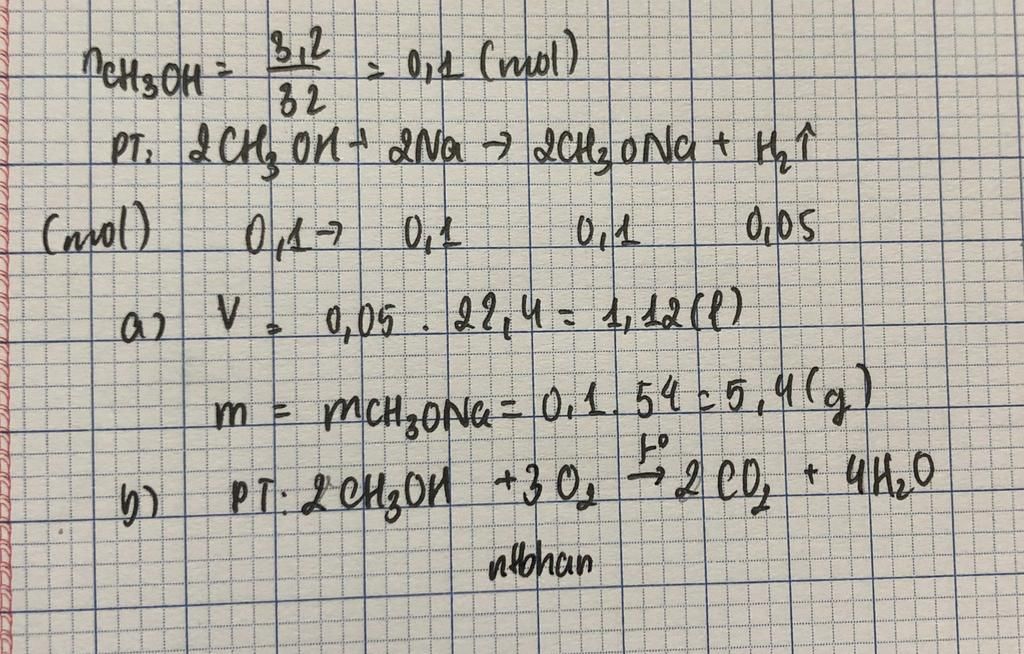 nCH₃OH = 3,2/32 = 0,1 (mol)
PT: 2CH₃OH + 2Na → 2CH₃ONa + H₂↑
(mol) 0,1→ 0,1 0,1 0,05
a) V = 0,05 . 22,4 = 1,12 (l)
m = mCH₃ONa = 0,1 . 54 = 5,4 (g)
b) PT: 2CH₃OH + 3O₂ t°→ 2CO₂ + 4H₂O
ntbhan